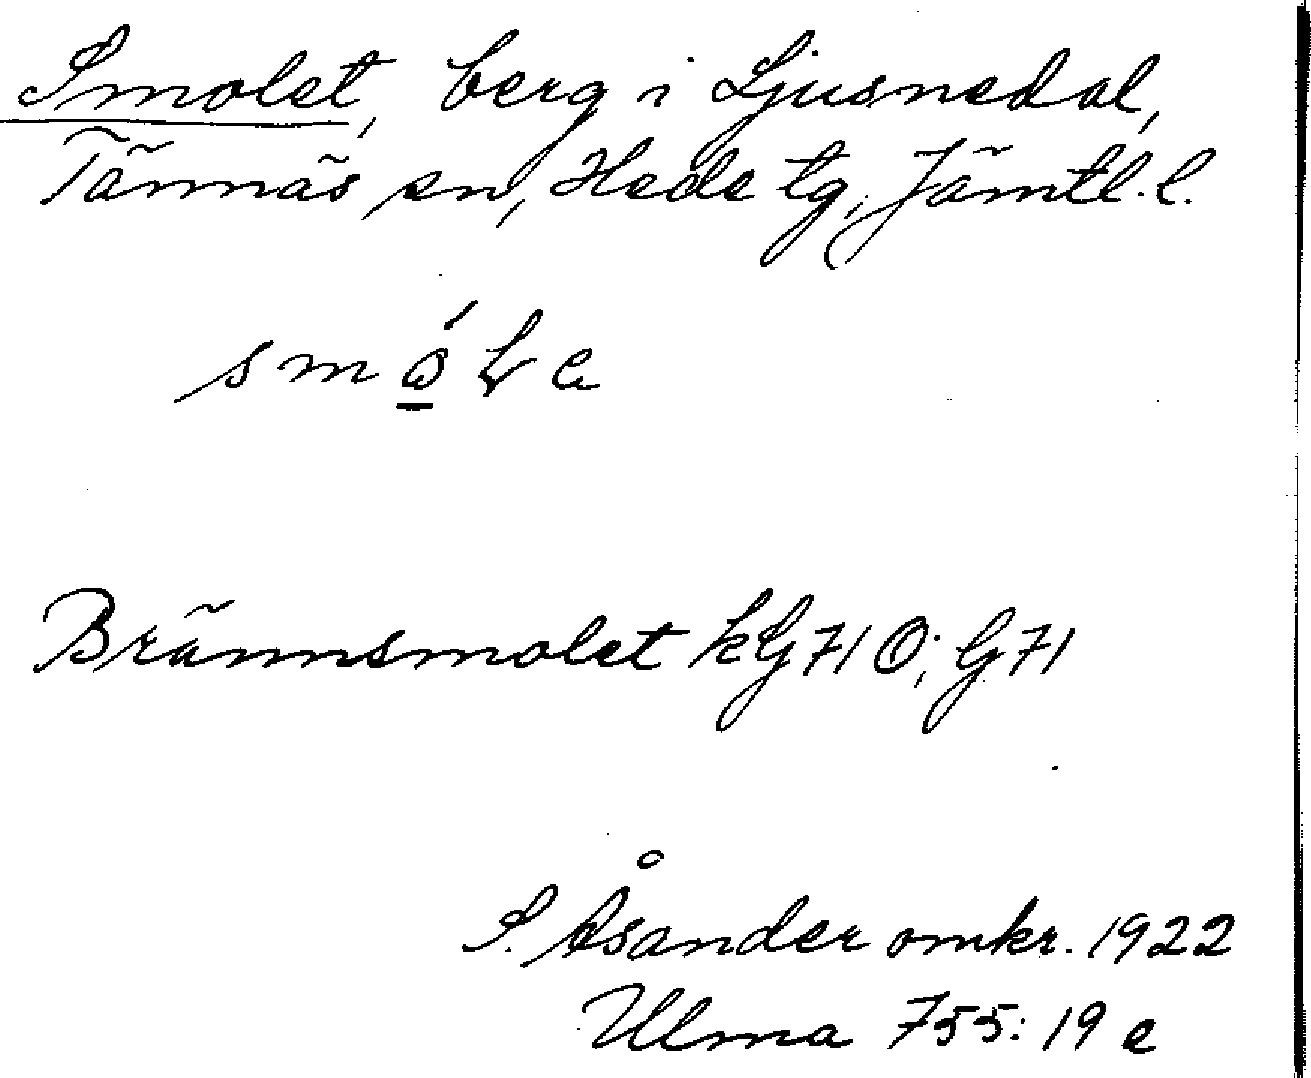 Smolet, berg i Ljusnedal,
Tännäs sn, Hede tg, Jämtl. l.
Brännsmolet kG71Ö; G71
S. Åsander omkr. 1922
Ulma 755: 19 e